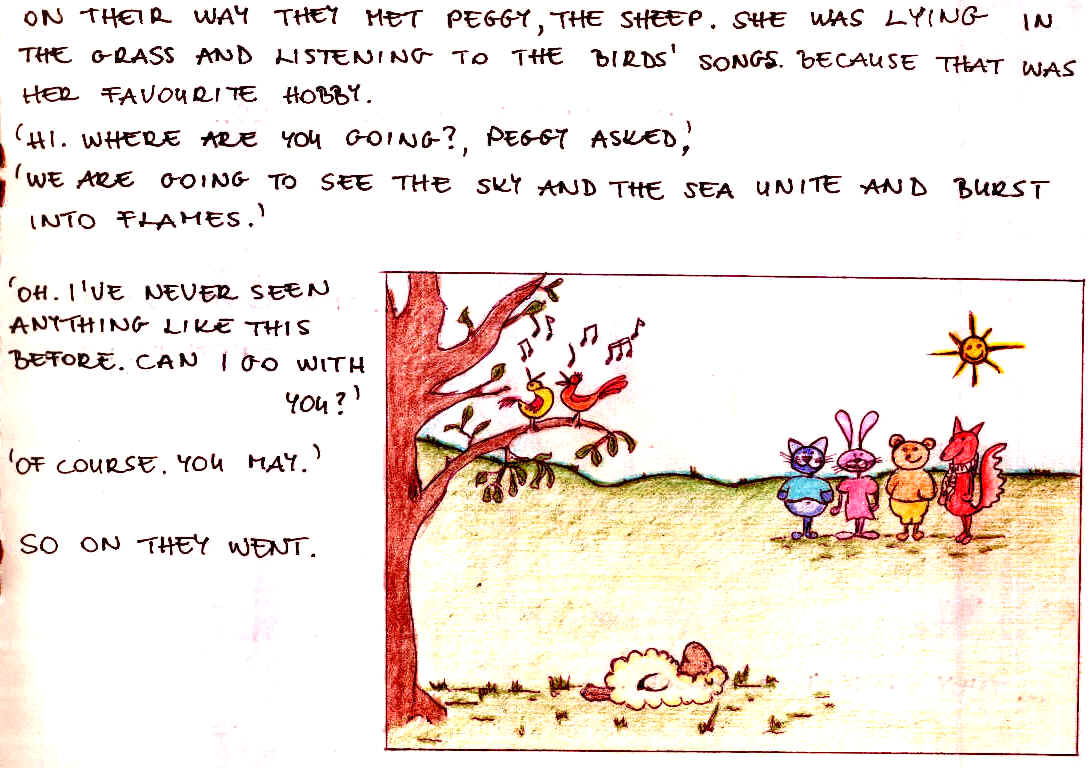 ON THEIR WAY THEY MET PEGGY, THE SHEEP. SHE WAS LYING IN
THE GRASS AND LISTENING TO THE BIRDS' SONGS. BECAUSE THAT WAS
HER FAVOURITE HOBBY.
'HI. WHERE ARE YOU GOING?, PEGGY ASKED,'
'WE ARE GOING TO SEE THE SKY AND THE SEA UNITE AND BURST
INTO FLAMES.'
'OH. I'VE NEVER SEEN
ANYTHING LIKE THIS
BEFORE. CAN I GO WITH
YOU?'
'OF COURSE. YOU MAY.'
SO ON THEY WENT.